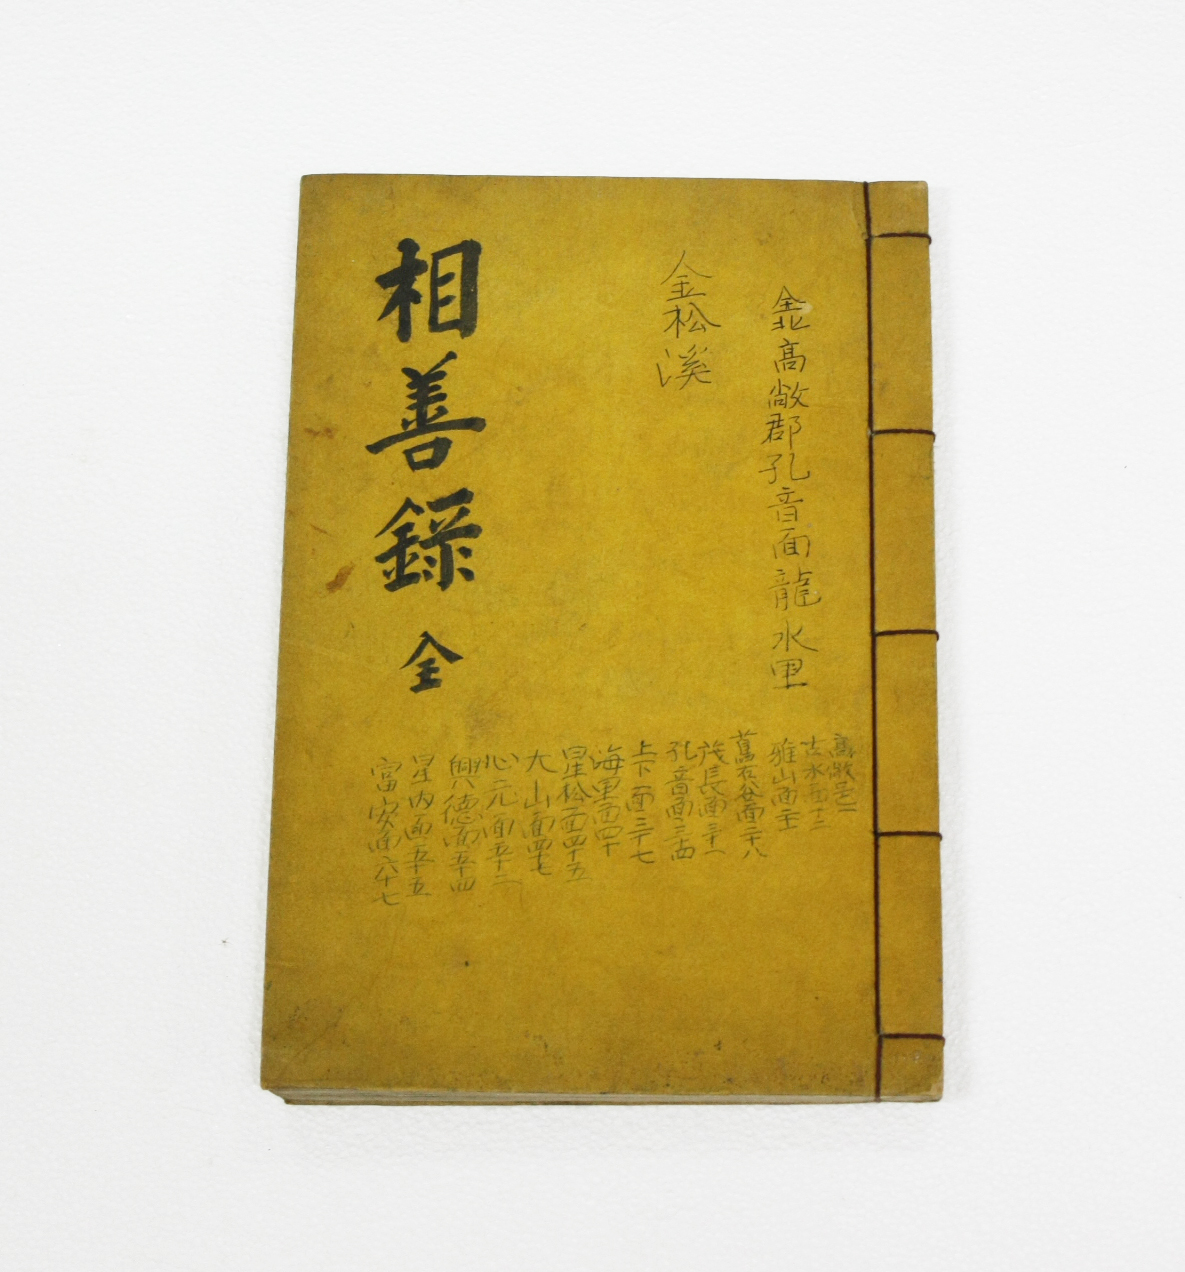 全北高敞郡孔音面龍水里
金松溪
相善錄 全
高敞邑一
古水面十二
雅山面二十
面二十八
茂長面三十一
孔音面三十四
上下面三十七
海里面四十
星松面四十五
大山面四十七
心元面五十二
興德面五十四
星內面五十五
富安面六十七